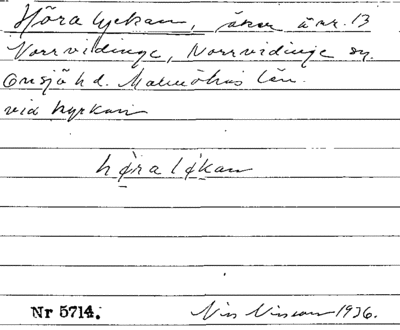 Höralyckan, åker å nr. 13
Norrvidinge, Norrvidinge sn.
Onsjö hd. Malmöhus län.
vid kyrkan
høra løkan
Nr 5714.
Nils Nilsson 1936.